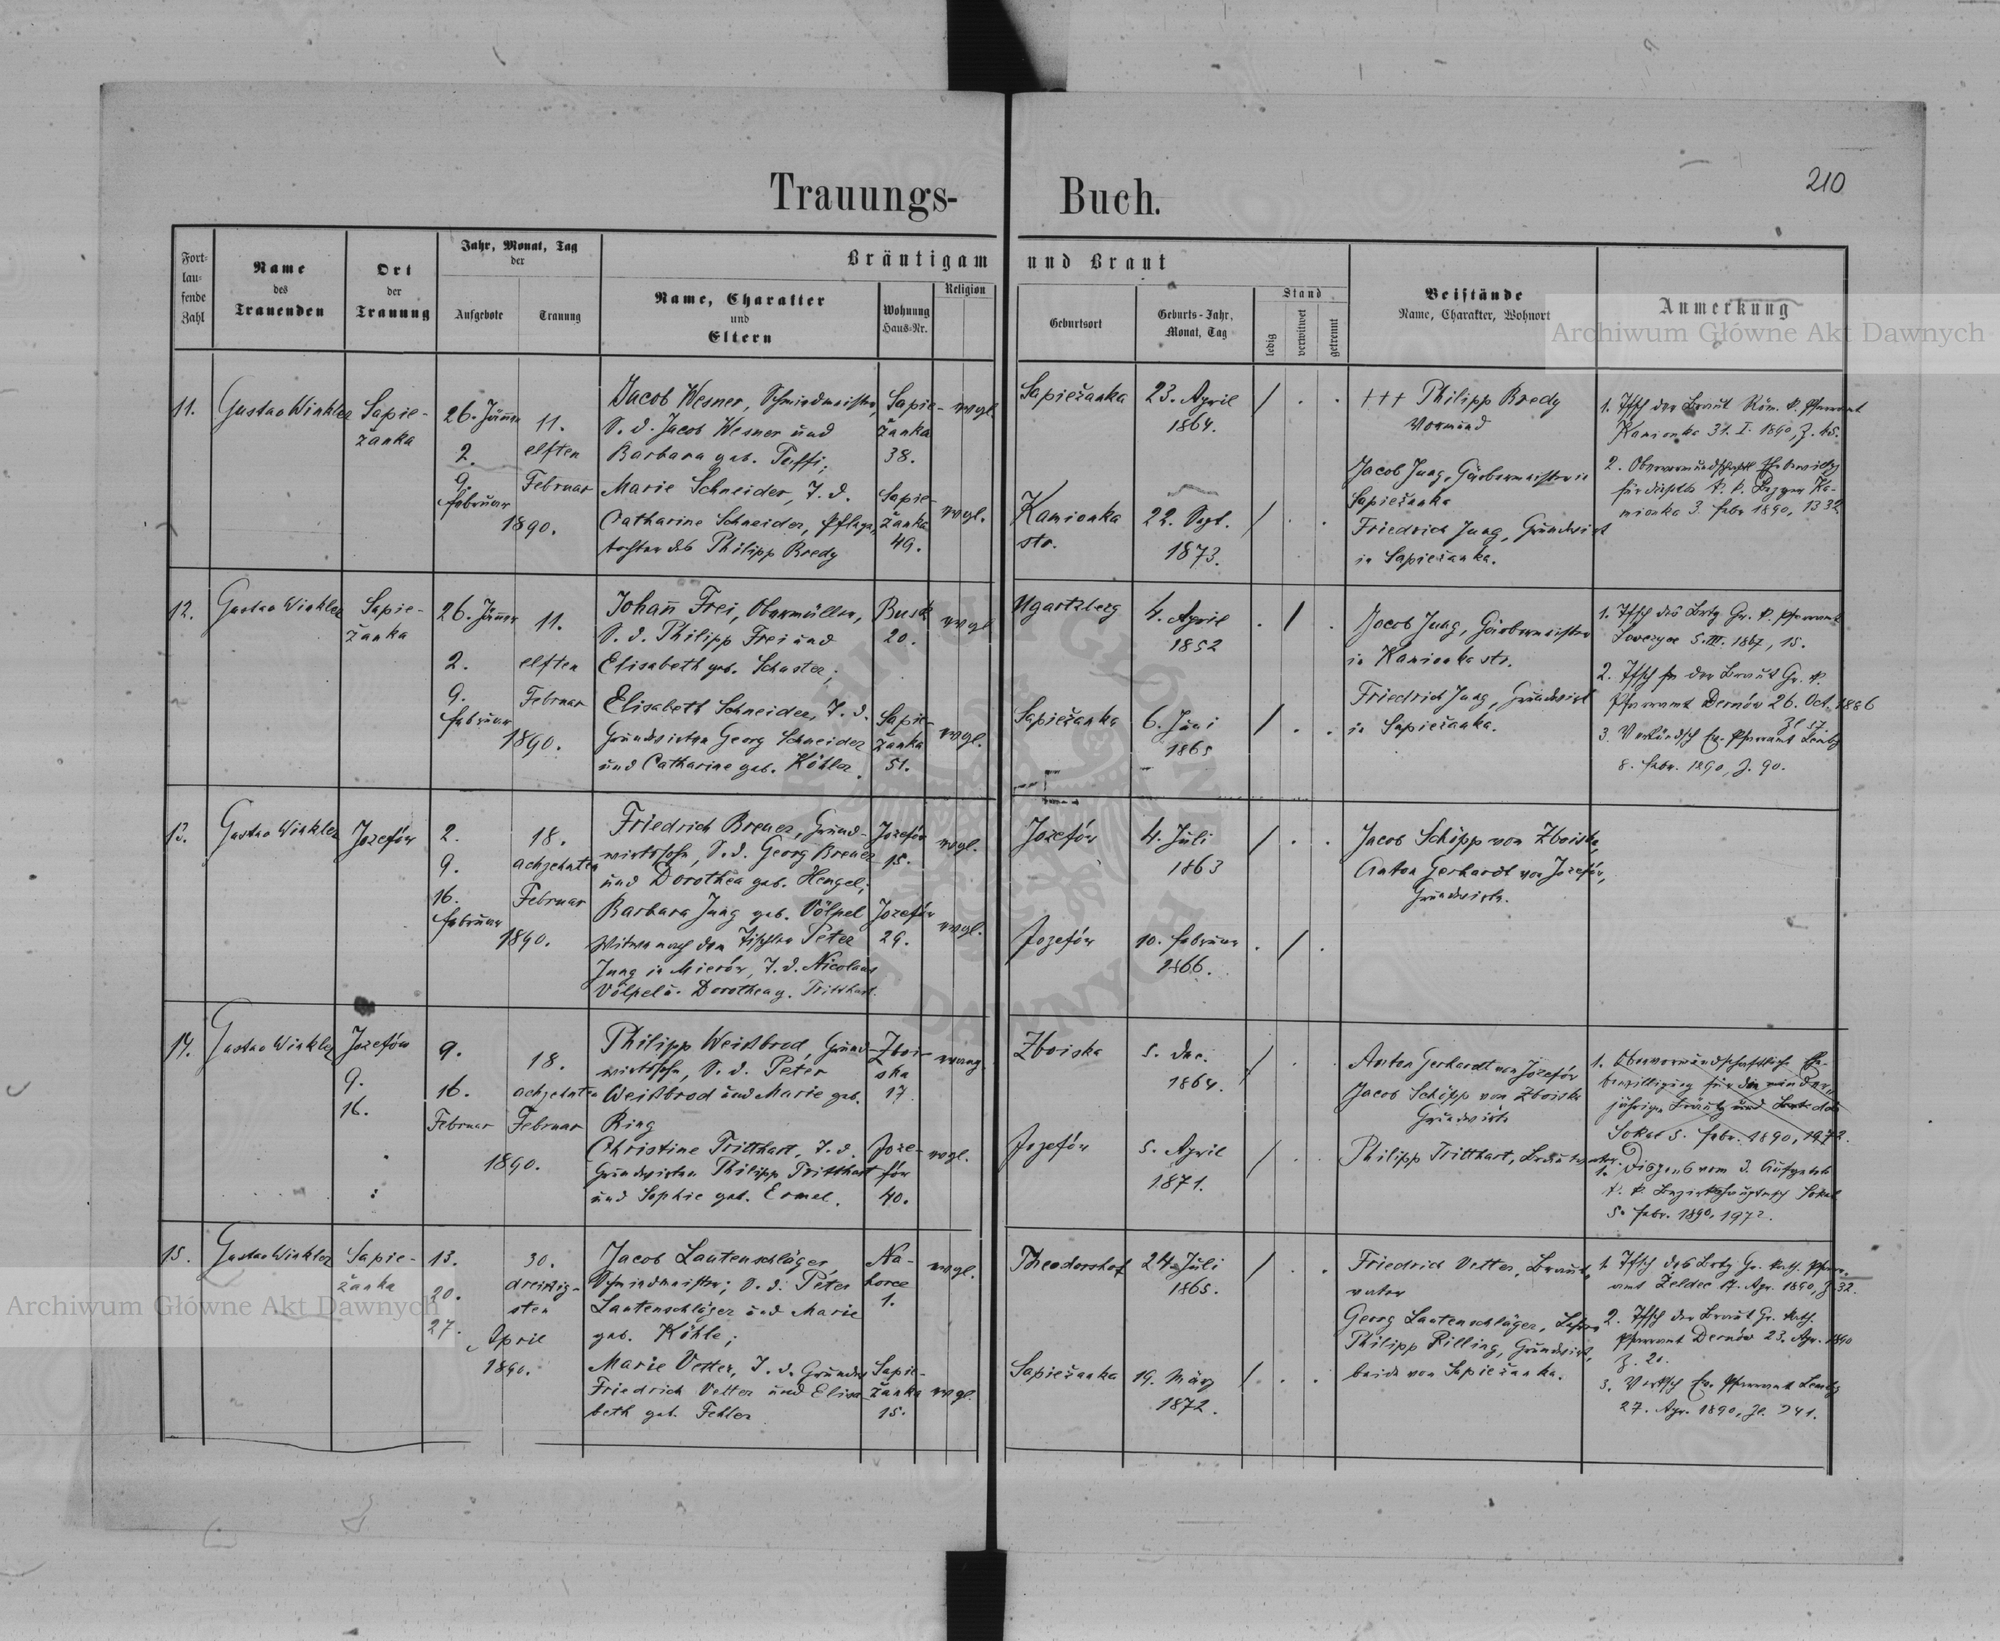 210
Trauungs- Buch.
Fort-
lau-
fende
Zahl
Name
des
Trauenden
Ort
der
Trauung
Jahr, Monat, Tag
der
Aufgebote
Trauung
Bräutigam und Braut
Name, Charakter
und
Eltern
Wohnung
Haus-Nr.
Religion
Geburtsort
Geburts-Jahr,
Monat, Tag
Stand
ledig
verwitwet
getrennt
Beistände
Name, Charakter, Wohnort
Anmerkung
Archiwum Główne Akt Dawnych
11.
Gustav Winkler
Sapie-
žanka
26. Jänner
2.
9.
Februar
11.
elften
Februar
1890.
Jacob Wesner, Schmiedmeister,
S. d. Jacob Wesner und
Barbara geb.
Marie Schneider, T. d.
Catharine Schneider, Pflege-
tochter des Philipp Bredy
Sapie-
žanka
38.
Sapie-
žanka
49.
evgl.
evgl.
Sapiežanka
23. April
1864.
Kamionka
str.
22. Sept.
1873.
+++ Philipp Bredy
Vormund
Jacob Jung, Gärbermeister in
Sapiežanka
Friedrich Jung, Grundwirt
in Sapiežanka.
1. Tfsch der Braut Röm. k. Pfarramt
Kamionka 31. I. 1890, Z. 45.
2.
für dieselbe k. k. Bezger Ka-
mionka 3. Febr 1890, 1332
12.
Gustav Winkler
Sapie-
žanka
26. Jänner
2.
9.
Februar
11.
elften
Februar
1890.
Johann Frei, Obermüller,
S. d. Philipp Frei und
Elisabeth geb. Schuster;
Elisabeth Schneider, T. d.
Grundwirten Georg Schneider
und Catharine geb. Köhler.
Busk
20.
Sapie-
žanka
51.
evgl
evgl.
Ugartsberg
4. April
1852
Sapiežanka
6. Juni
1865
Jacob Jung, Gärbermeister
in Kamionka str.
Friedrich Jung, Grundwirt
in Sapiežanka.
1. Tfsch des Brtg Gr. k. Pfarramt
5. III. 1867, 15.
2. Tfsch der Braut Gr. k.
Pfarramt Dernów 26. Oct. 1886
Zl 57.
3. Verkündsch Ev. Pfarramt Lembg
8. Febr. 1890, Z. 90.
13.
Gustav Winkler
Jozefów
2.
9.
16.
Februar
18.
achzehnten
Februar
1890.
Friedrich Brenez, Grund-
wirtssohn, S. d. Georg Brenez
und Dorothea geb. Hengel;
Barbara Jung geb. Völpel
Witwe nach dem Tischler Peter
Jung in Mierów, T. d. Nicolaus
Völpel u. Dorothea g. Tritthart.
Jozefów
15.
Jozefów
29.
evgl.
evgl.
Jozefów
4. Juli
1863
Jozefów
10. Februar
1866.
Jacob Schöpp von Zboiska,
Anton Gerhardt von Jozefów,
Grundwirte.
14.
Gustav Winkler
Jozefów
9.
16.
9.
16.
Februar
18.
achzehnten
Februar
1890.
Philipp Weißbrod, Grund-
wirtssohn, S. d. Peter
Weißbrod und Marie geb.
Ring
Christine Tritthart, T. d.
Grundwirten Philipp Tritthart
und Sophie geb. Ermel.
Zboi-
ska
17
Joze-
fów
40.
evang.
evgl.
Zboiska
5. Dec.
1864.
Jozefów
5. April
1871.
Anton Gerhardt von Jozefów
Jacob Schöpp von Zboiska
Grundwirte
Philipp Tritthart, Brautvater.
1. Obervormundschaftliche Be-
bewilligung für die minder-
jährige
Sokal 5. Febr. 1890, 1972.
1. Dispens vom 3. Aufgebote
k. k. Bezirkshauptmsch Sokal
5. Febr. 1890, 1972.
15.
Gustav Winkler
Sapie-
žanka
13.
20.
27.
30.
dreißig-
sten
April
1890.
Jacob Lautenschläger,
Schmiedmeister; S. d. Peter
Lautenschläger und Marie
geb. Köhle;
Marie Vetter, T. d. Grundw
Friedrich Vetter und Elisa-
beth geb. Fehler
Na-
horce
1.
Sapie-
žanka
15.
evgl.
evgl.
Theodorshof
24. Juli
1865.
Sapiežanka
19. März
1872.
Friedrich Vetter, Braut-
vater
Georg Lautenschläger,
Philipp Rilling, Grundwirt,
beide von Sapiežanka.
1. Tfsch des Brtg Gr. kath. Pfarr-
amt Želdec 17. Apr. 1890, Z 32.
2. Tfsch der Braut Gr. kath.
Pfarramt Dernów 23. Apr. 1890
Z. 20.
3. Vertsch Ev. Pfarramt Lembg
27. Apr. 1890, Zl. 241.
Archiwum Główne Akt Dawnych